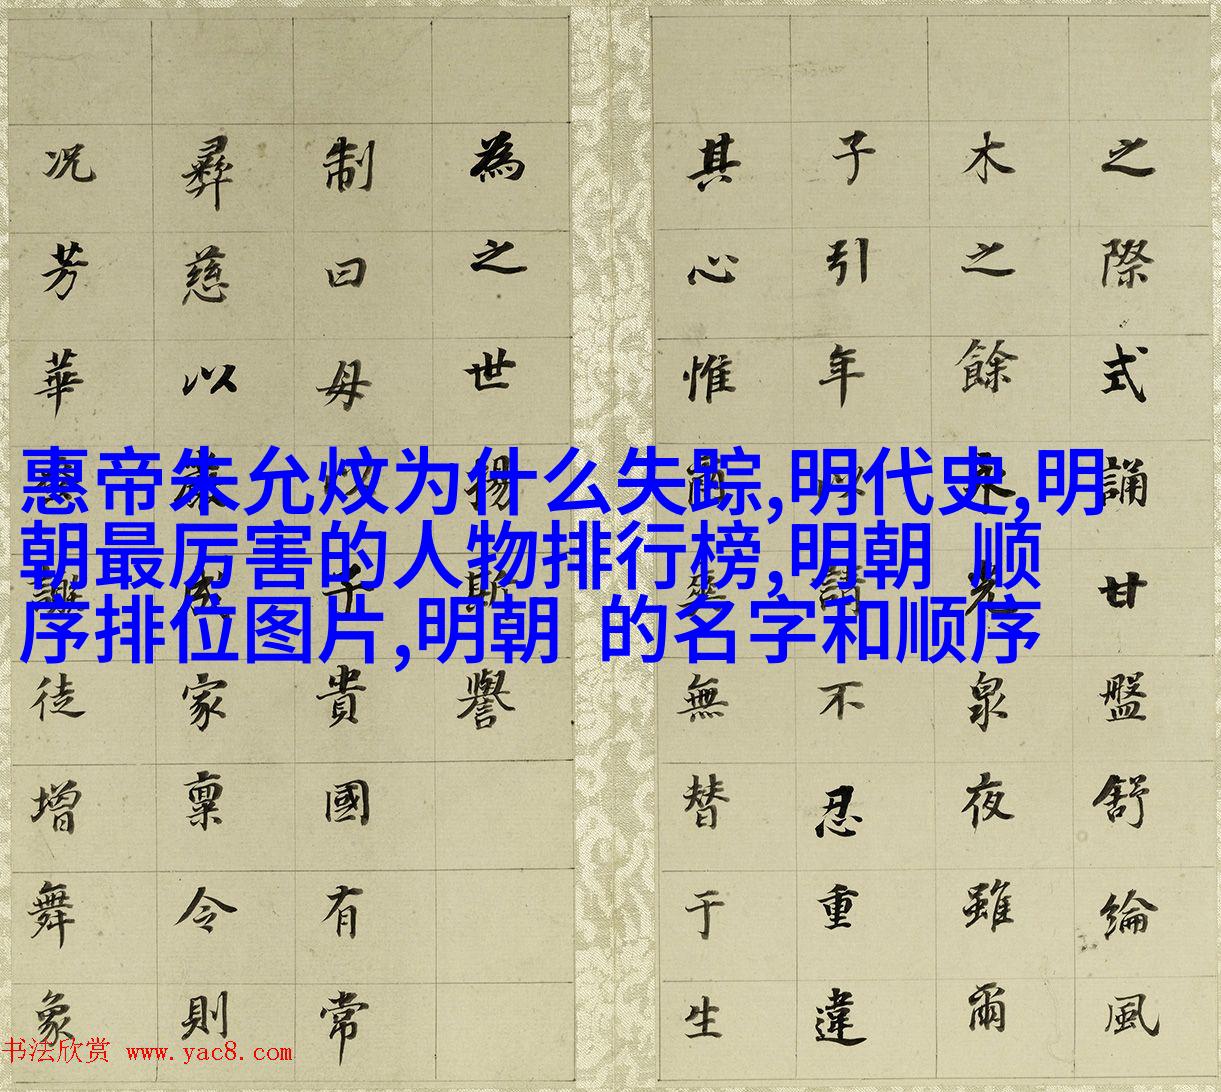 惠帝朱允炆为什么失踪,明代史,明
朝最厉害的人物排行榜,明朝 顺
序排位图片,明朝 的名字和顺序
之際式誦甘盤舒綸風
木之餘光泉夜雖爾
子引年以請不忍重違
其心惟無替于生
為之世揚斯譽
制曰母以子貴國有常
彝慈以成家稟令則
况芳華徒增舞象
书法欣赏 www.yac8.com